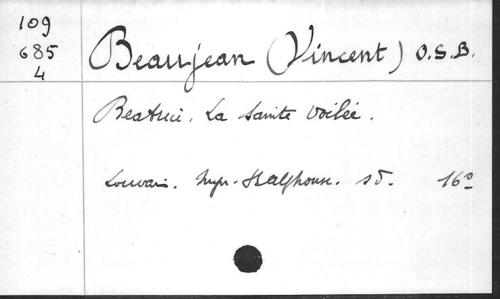 109
685
4
Beaujean (Vincent) O.S.B.
Beatrice. La Sainte Voilée.
Louvain. Impr. sd. 16°